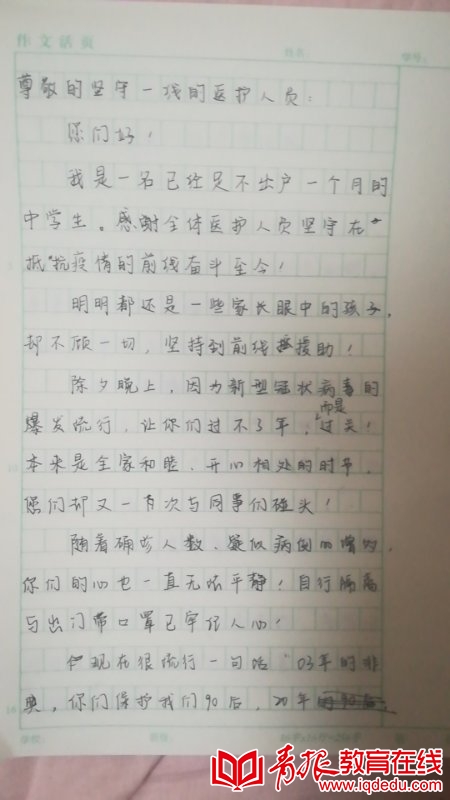 作文活页
姓名：
学号：
尊敬的坚守一线的医护人员：
您们好！
我是一名已经足不出户一个月的
中学生。感谢全体医护人员坚守在“
抵”抗疫情的前线奋斗至今！
明明都还是一些家长眼中的孩子，
却不顾一切，坚持到前线援助！
除夕晚上，因为新型冠状病毒的
爆发流行，让你们过不了年，而是过关！
本来是全家和睦、开心相处的时节，
您们却又一次与同事们碰头！
随着确诊人数、疑似病例的增加，
你们的心也一直无法平静！自行隔离
与出门带口罩已牢记人心！
现在很流行一句话“03年的非
典，你们保护我们90后，20年
学校：
青报教育在线
www.iqdedu.com